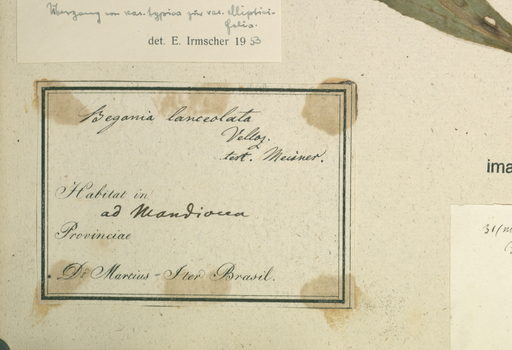 Übergang von var. typica zur var. elliptici-
folia.
det. E. Irmscher 19 53
Begonia lanceolata
Velloz.
test. Meisner.
Habitat in
ad Mandiocca
Provinciae
Dr Martius - Iter Brasil.
ima
31/